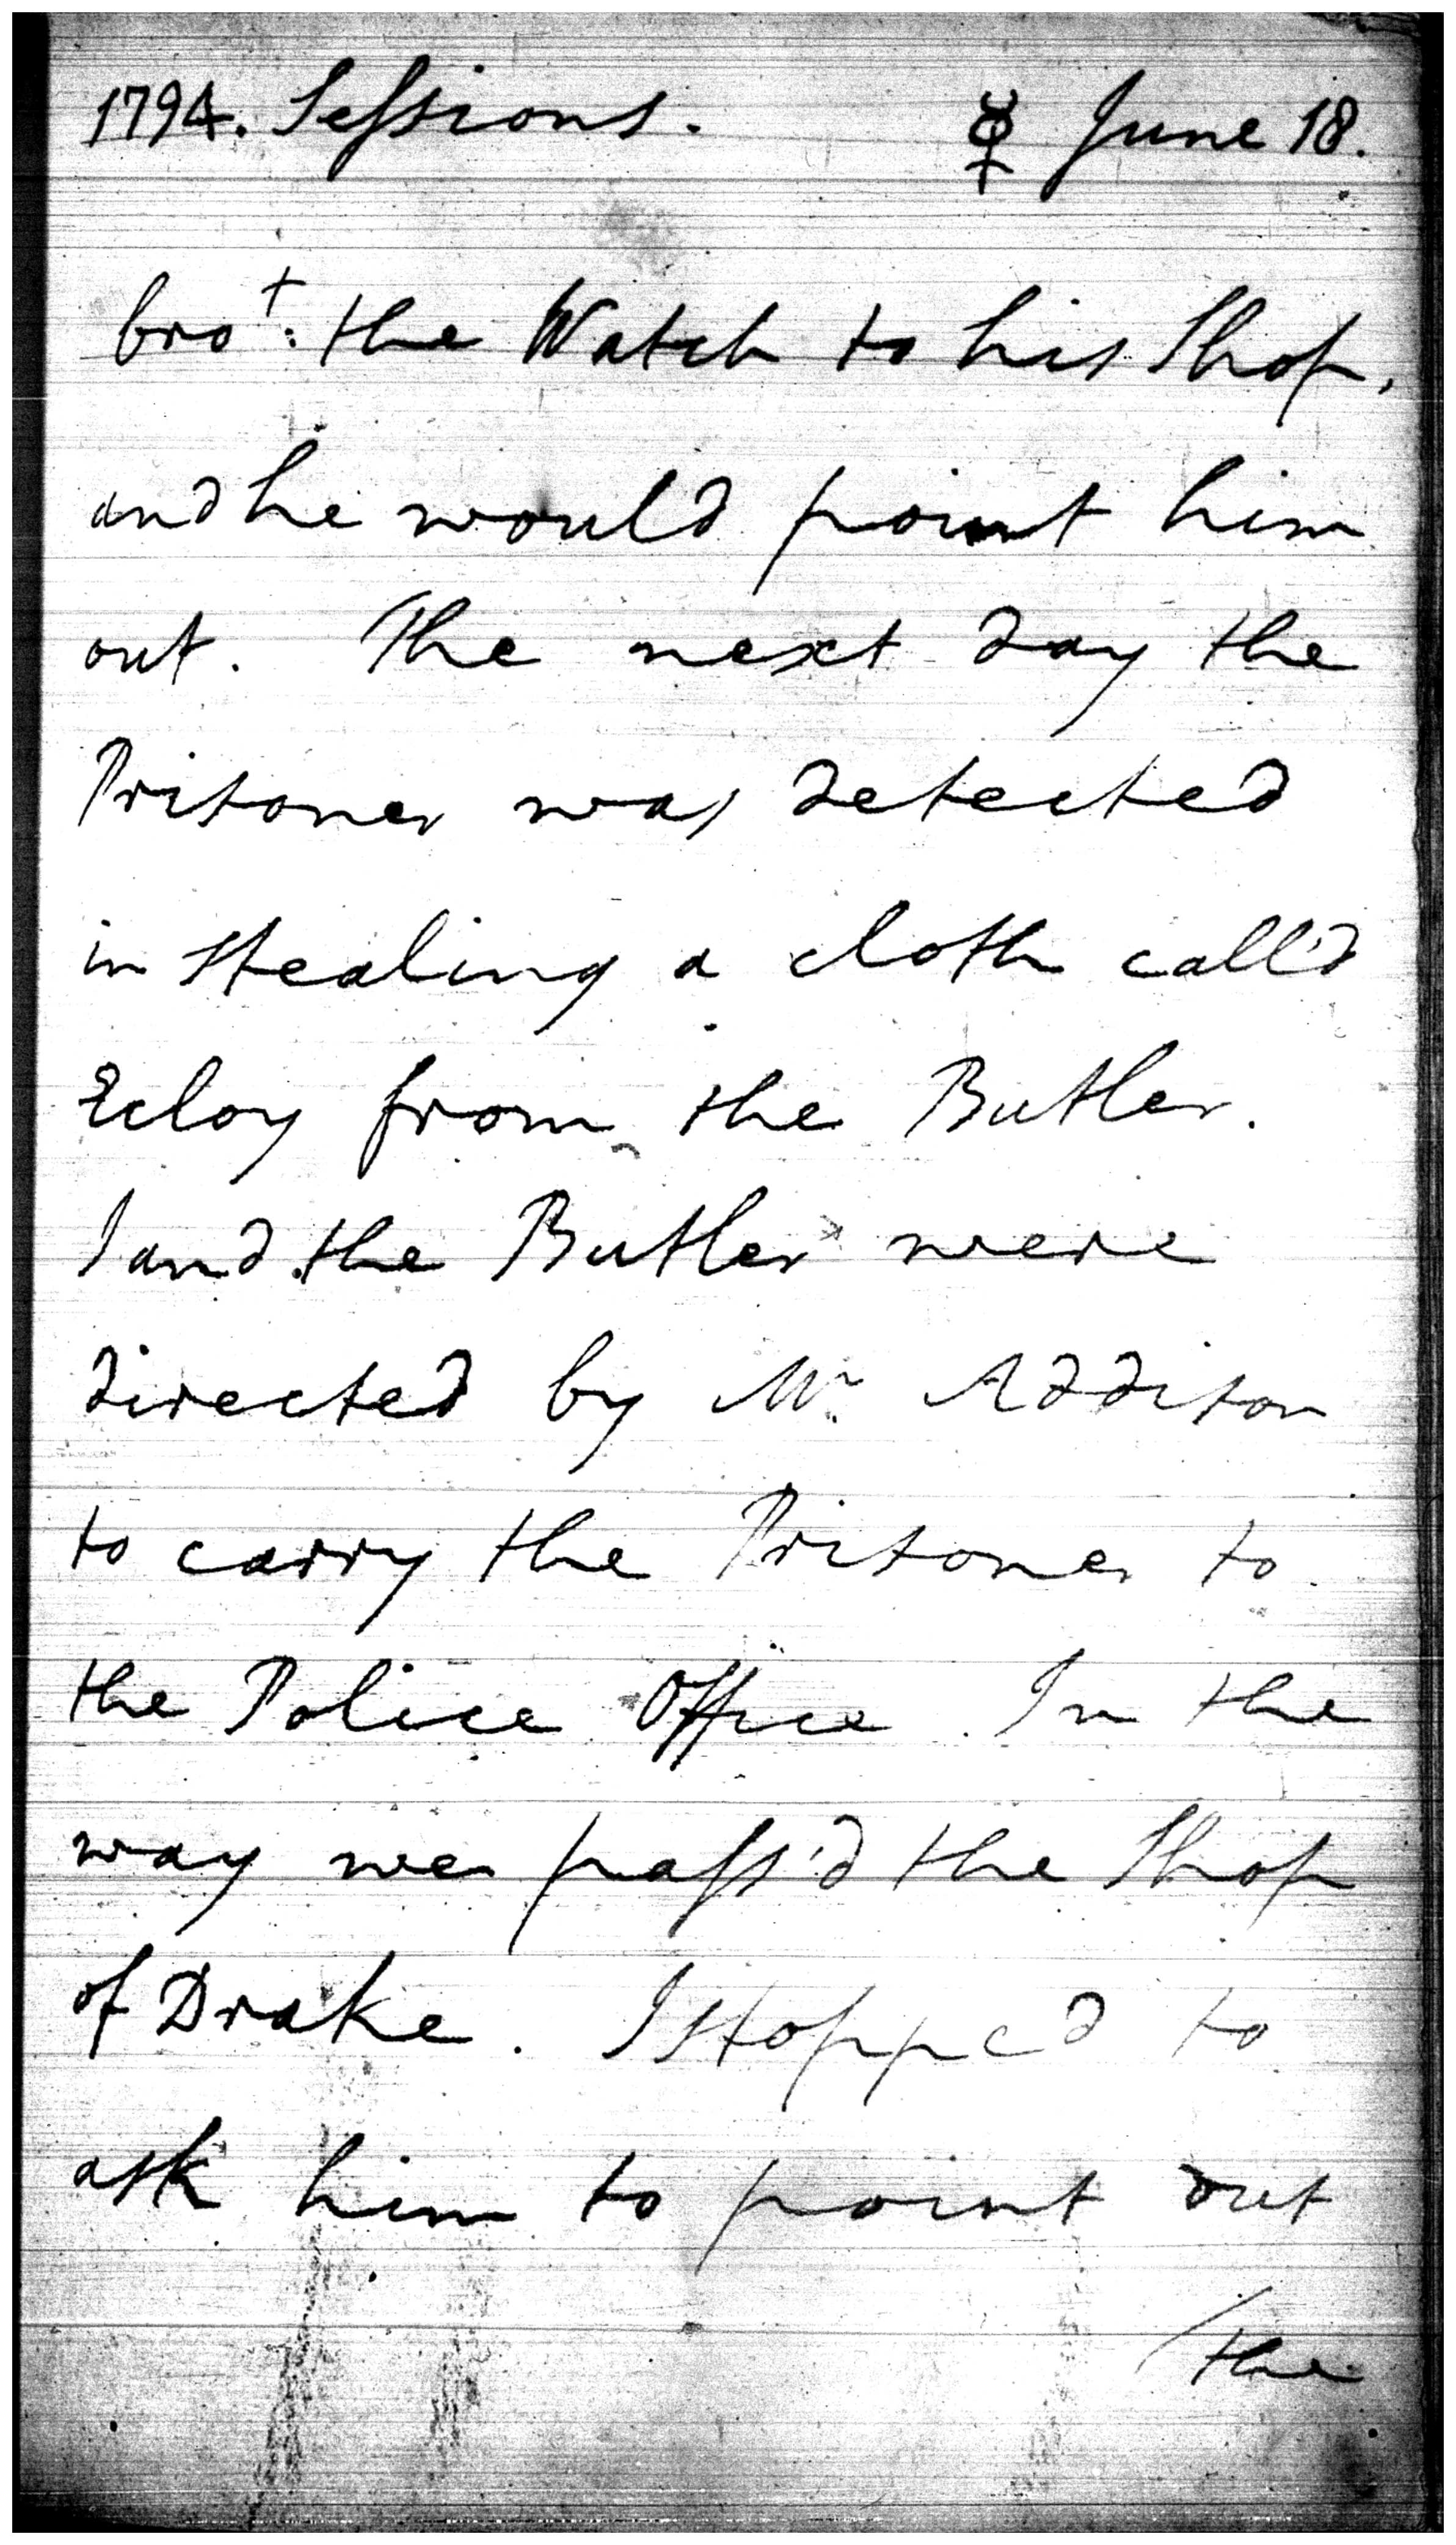 1794. Sessions. ☿ June 18.
bro^t: the Watch to his Shop,
and he would point him
out. The next day the
Prisoner was detected
in stealing a cloth call'd
Ecloy from the Butler.
I and the Butler were
directed by Mr. Addison
to carry the Prisoner to
the Police Office. In the
way we pass'd the Shop
of Drake. I stopped to
ask him to point out
/the